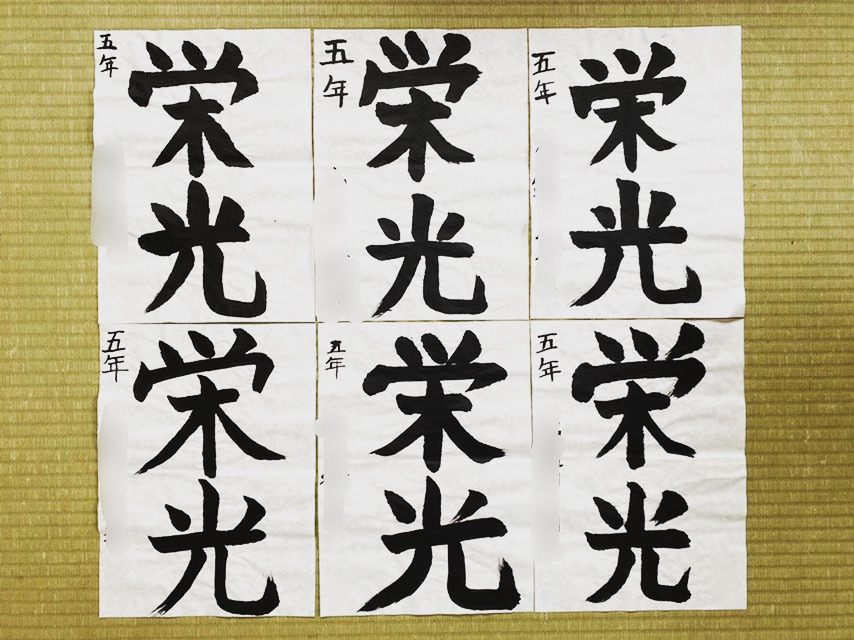 栄光
五年
栄光
五年
栄光
五年
栄光
五年
栄光
五年
栄光
五年